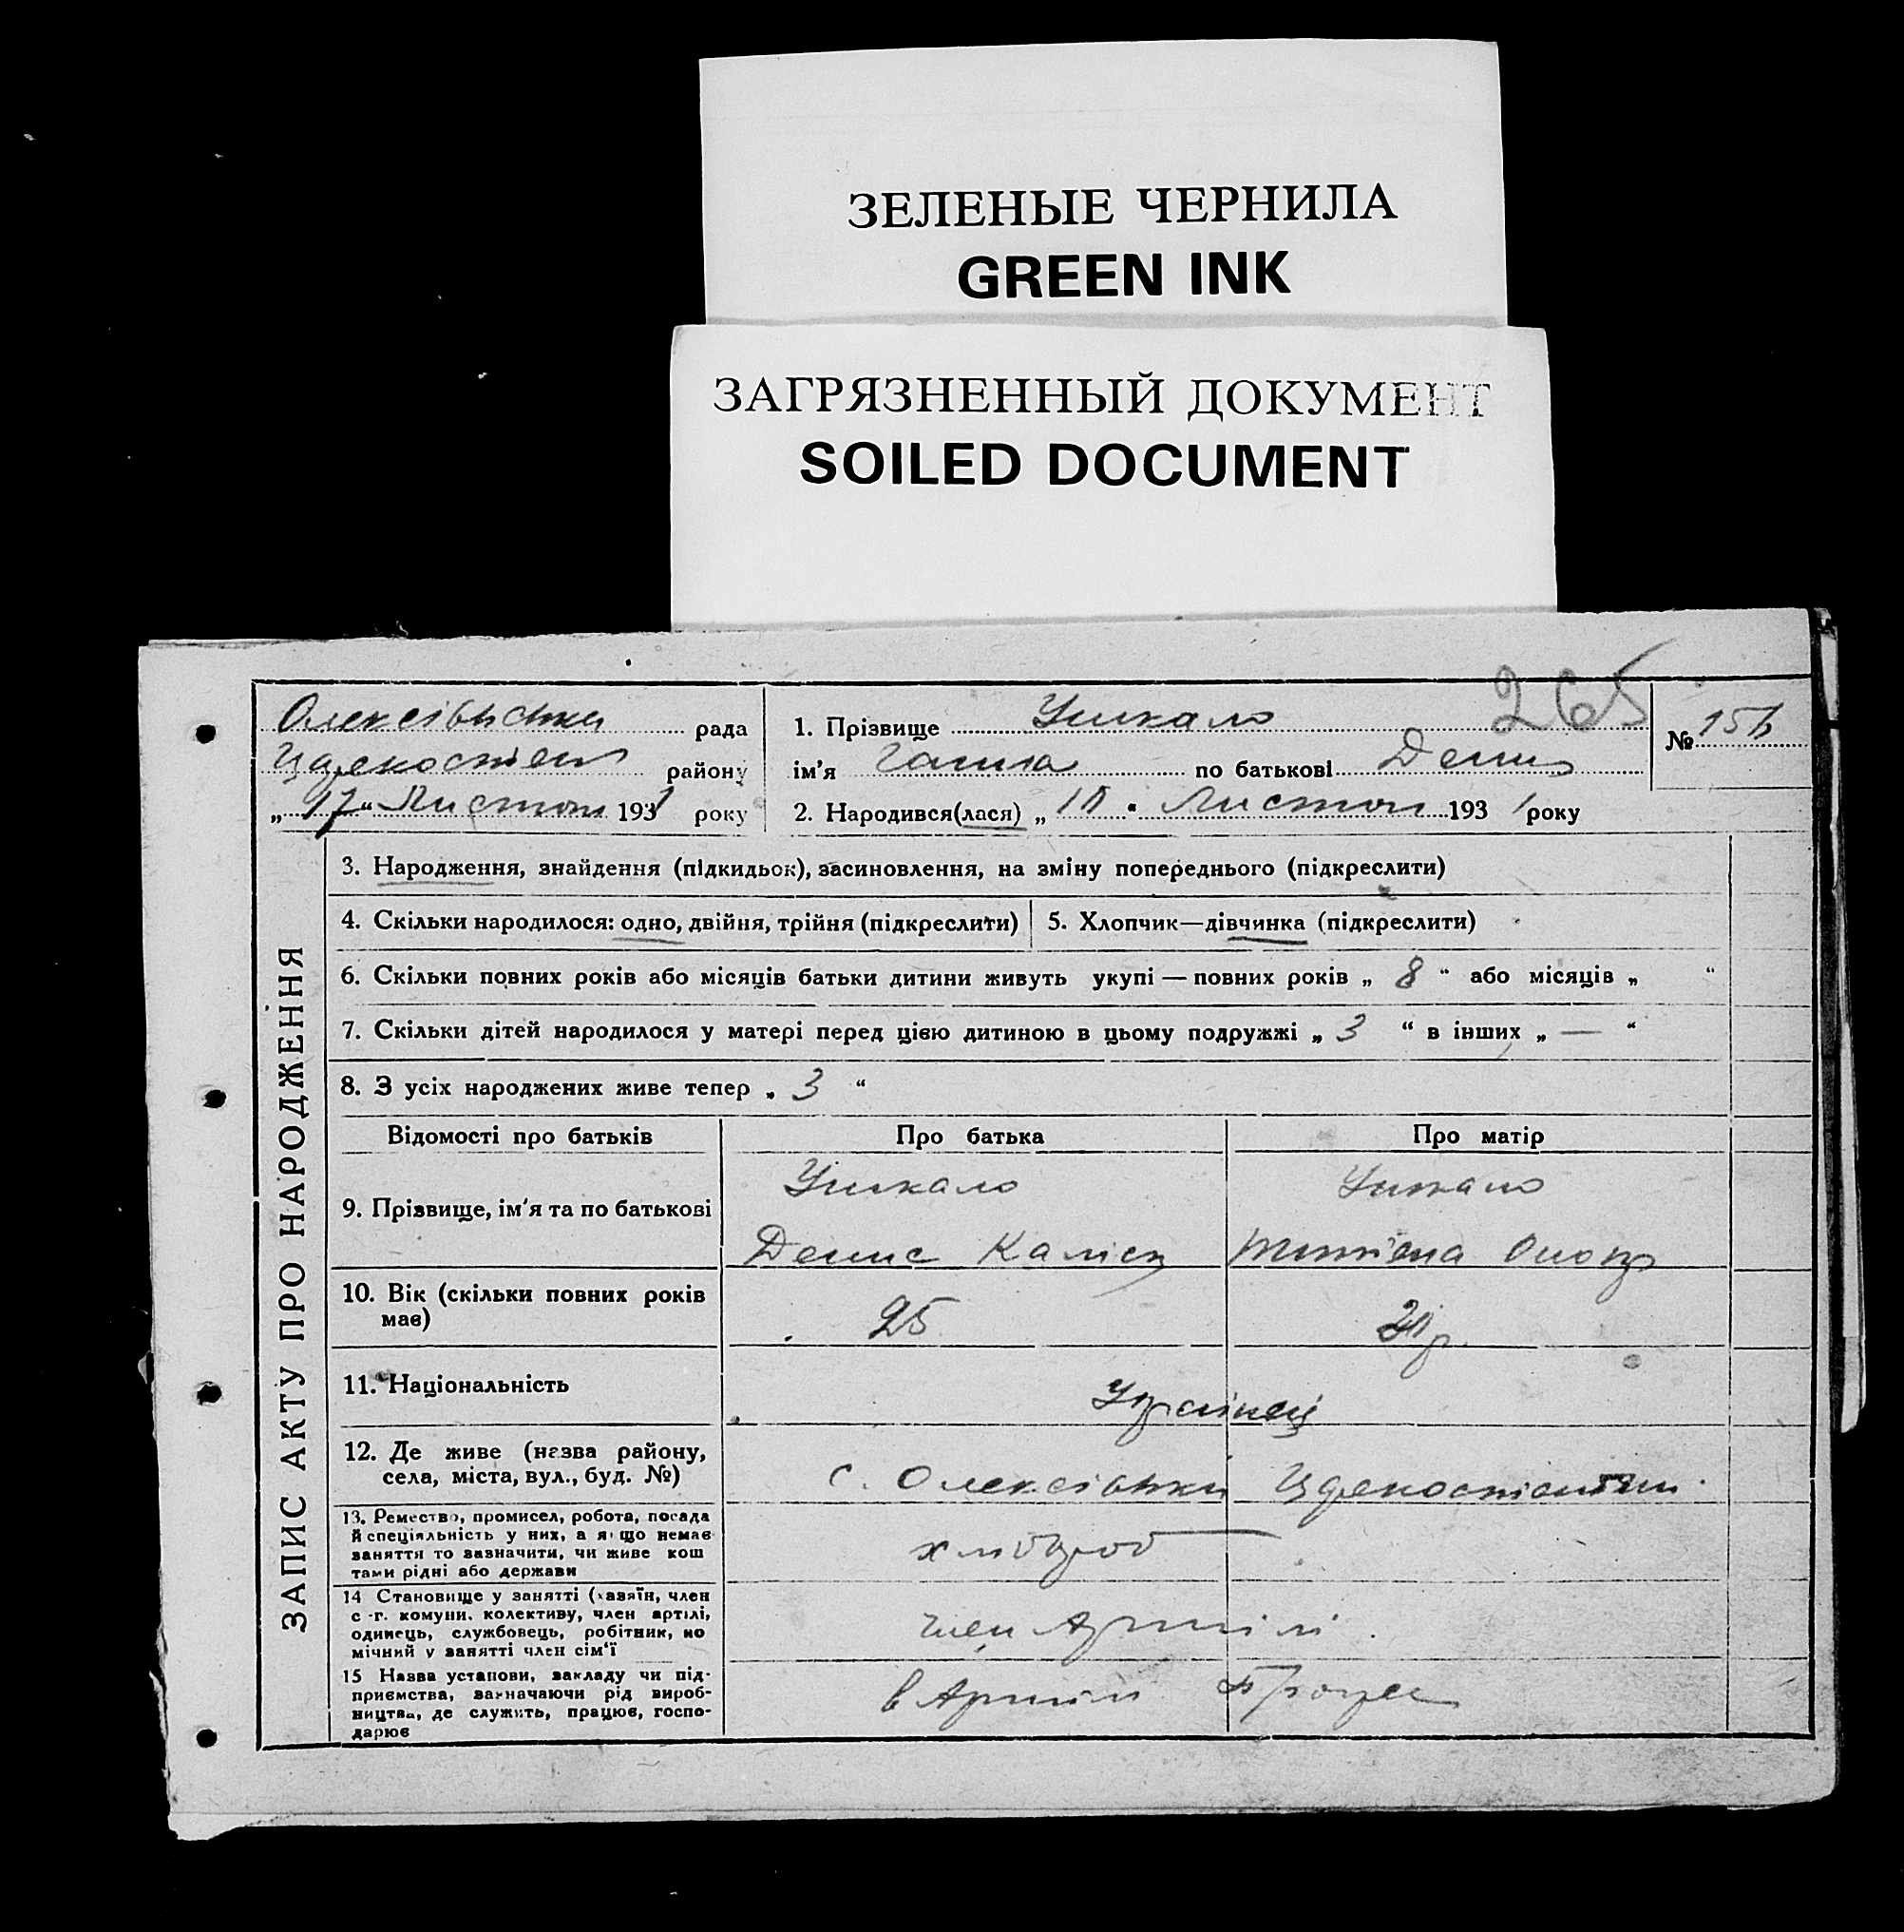 ЗЕЛЕНЫЕ ЧЕРНИЛА
GREEN INK
ЗАГРЯЗНЕННЫЙ ДОКУМЕНТ
SOILED DOCUMENT
265
рада
району
„ 17 “ Листоп 1931 року
1. Прізвище
ім'я Ганна по батькові Денис
2. Народився(лася) „ “ Листоп 1931 року
№
ЗАПИС АКТУ ПРО НАРОДЖЕННЯ
3. Народження, знайдення (підкидьок), засиновлення, на зміну попереднього (підкреслити)
4. Скільки народилося: одно, двійня, трійня (підкреслити)
5. Хлопчик—дівчинка (підкреслити)
6. Скільки повних років або місяців батьки дитини живуть укупі — повних років „ 8 “ або місяців „ “
7. Скільки дітей народилося у матері перед цією дитиною в цьому подружжі „ 3 “ в інших „ — “
8. З усіх народжених живе тепер „ 3 “
Відомості про батьків
Про батька
Про матір
9. Прізвище, ім'я та по батькові
Денис
10. Вік (скільки повних років
має)
25
11. Національність
Українці
12. Де живе (назва району,
села, міста, вул., буд. №)
с.
13. Ремество, промисел, робота, посада
й спеціяльність у них, а якщо немає
заняття то зазначити, чи живе кош
тами рідні або держави
хлібороб
14 Становище у занятті (хазяїн, член
с.-г. комуни, колективу, член артілі,
одинець, службовець, робітник, по
мічний у занятті член сім'ї
член Артілі
15 Назва установи, закладу чи під-
приємства, зазначаючи рід вироб-
ництва, де служить, працює, госпо-
дарює
в Артілі